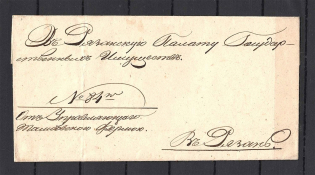 Въ Рязанскую Палату Государ-
ственныхъ Имуществъ.
№ 84й
Отъ Управляющаго
фермою.
Въ Рязань.